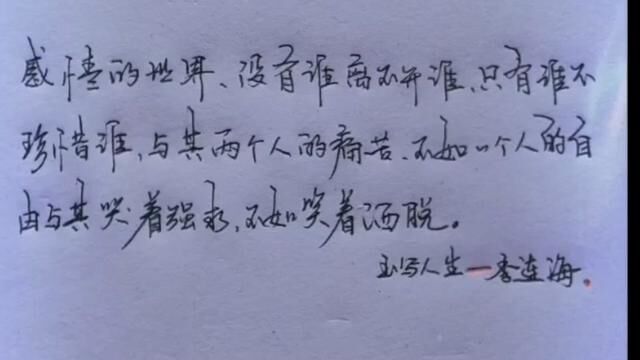 感情的世界、没有谁离不开谁,只有谁不
珍惜谁,与其两个人的痛苦、不如一个人的自
由与其哭着强求,不如笑着洒脱。
写人生一李连海。